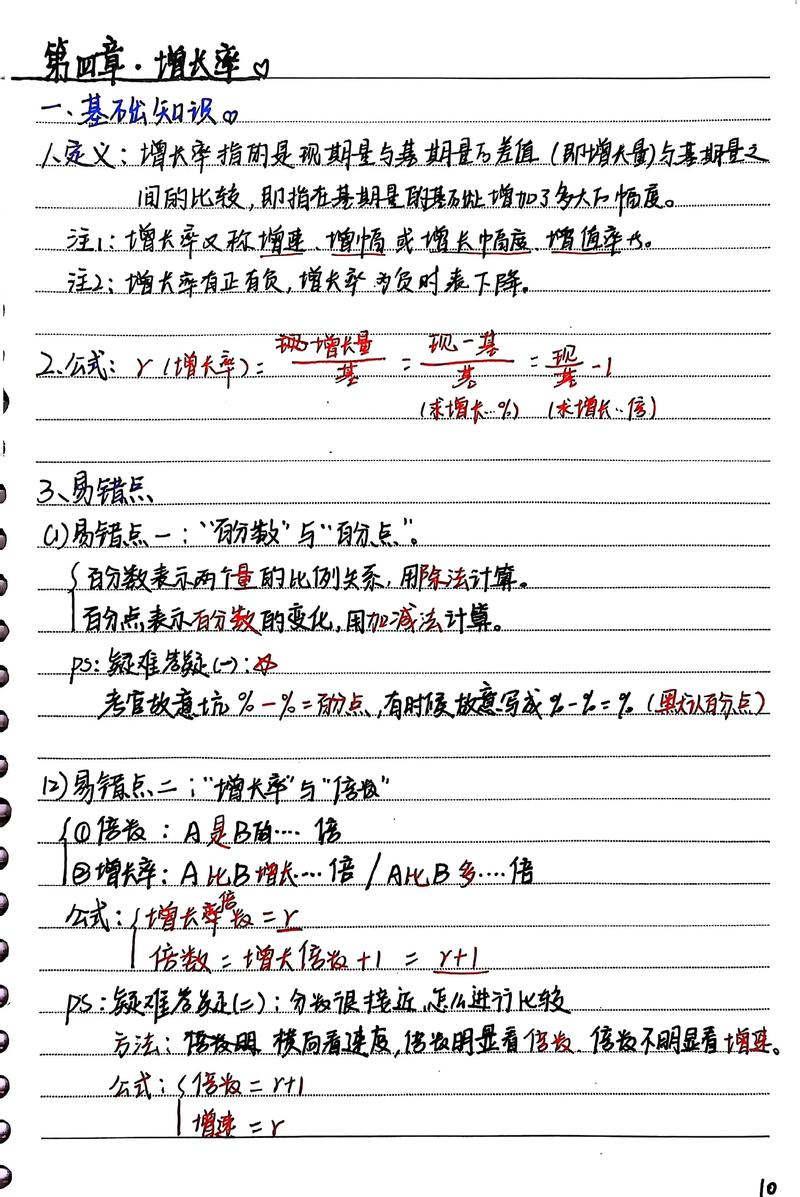 第四章·增长率♡
一、基础知识♡
1、定义：增长率指的是现期量与基期量的差值（即增长量）与基期量之
间的比较，即指在基期量的基础上增加了多大的幅度。
注1：增长率又称增速、增幅或增长幅度、增值率等。
注2：增长率有正有负，增长率为负时表下降。
2、公式：r（增长率）= 增长量/基 = 现-基/基 = 现/基 -1
（求增长…%）（求增长…倍）
3、易错点
(1)易错点一：“百分数”与“百分点”。
百分数表示两个量的比例关系，用除法计算。
百分点表示百分数的变化，用加减法计算。
ps：疑难答疑(一)：☆
考官故意坑 %-%=百分点，有时候故意写成%-%=%（默认百分点）
(2)易错点二：“增长率”与“倍数”
①倍数：A是B的…倍
②增长率：A比B增长…倍/A比B多…倍
公式：增长倍数=r
倍数=增长倍数+1 = r+1
ps：疑难答疑(二)：分数很接近，怎么进行比较
方法：横向看速度，倍数明显看倍数、倍数不明显看增速。
公式：倍数=r+1
增速=r
10